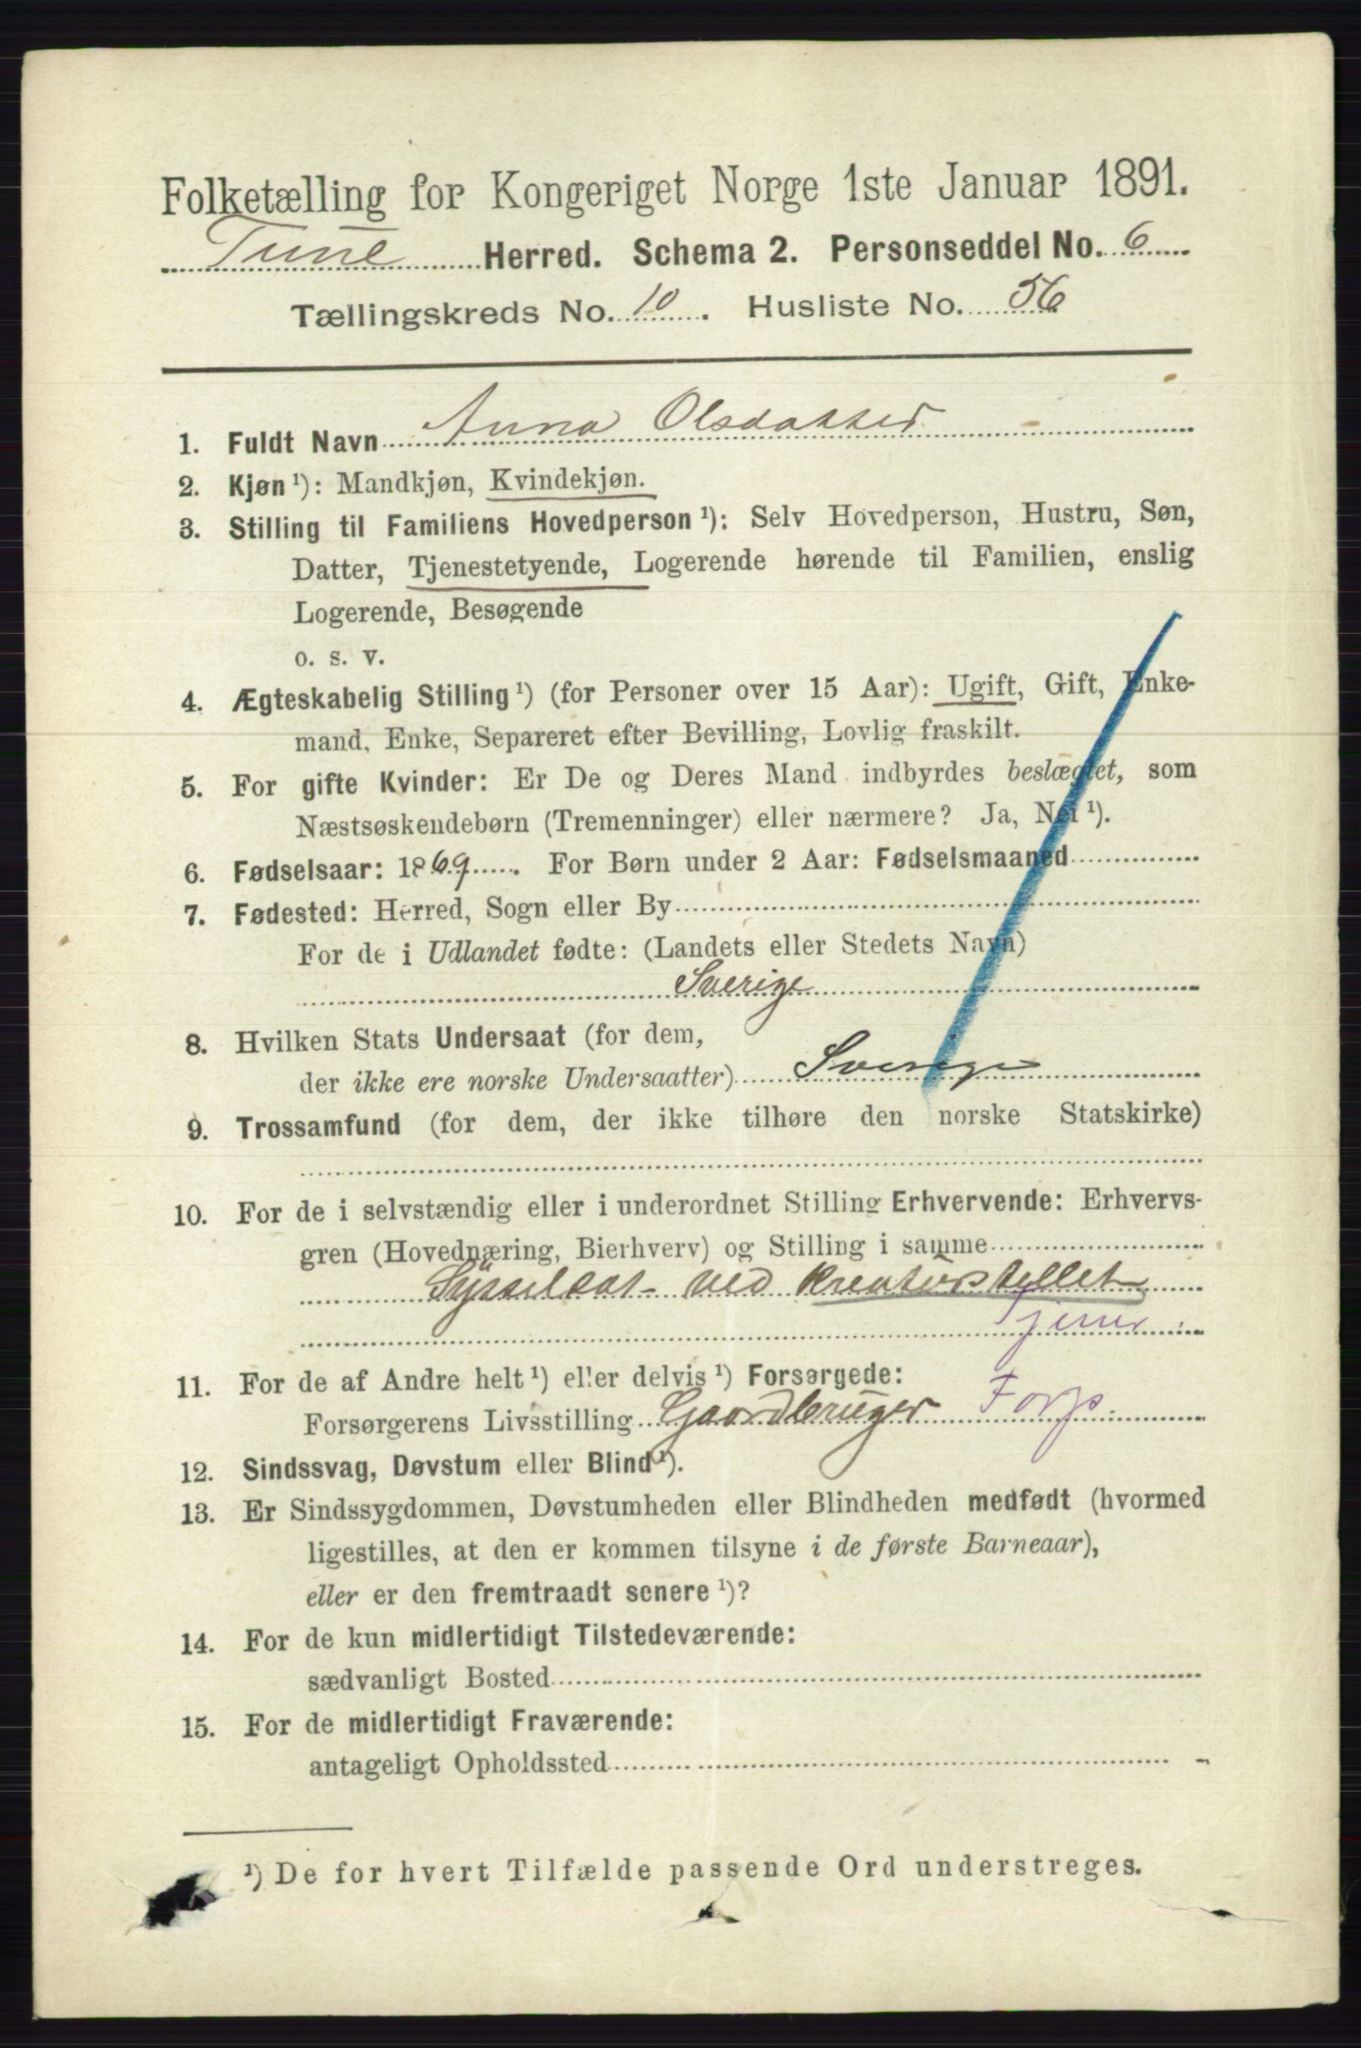 Folketælling for Kongeriget Norge 1ste Januar 1891.
Tune Herred. Schema 2. Personseddel No. 6
Tællingskreds No. 10. Husliste No. 56
1. Fuldt Navn Anna Olsdatter
2. Kjøn ¹): Mandkjøn, Kvindekjøn.
3. Stilling til Familiens Hovedperson ¹): Selv Hovedperson, Hustru, Søn,
Datter, Tjenestetyende, Logerende hørende til Familien, enslig
Logerende, Besøgende
o. s. v.
4. Ægteskabelig Stilling ¹) (for Personer over 15 Aar): Ugift, Gift, Enke-
mand, Enke, Separeret efter Bevilling, Lovlig fraskilt.
5. For gifte Kvinder: Er De og Deres Mand indbyrdes beslægtet, som
Næstsøskendebørn (Tremenninger) eller nærmere? Ja, Nei ¹).
6. Fødselsaar: 1869. For Børn under 2 Aar: Fødselsmaaned
7. Fødested: Herred, Sogn eller By
For de i Udlandet fødte: (Landets eller Stedets Navn)
Sverige
8. Hvilken Stats Undersaat (for dem,
der ikke ere norske Undersaatter) Sverige
9. Trossamfund (for dem, der ikke tilhøre den norske Statskirke)
10. For de i selvstændig eller i underordnet Stilling Erhvervende: Erhvervs-
gren (Hovednæring, Bierhverv) og Stilling i samme
Sysselsat ved kreaturstellet
Tjener
11. For de af Andre helt ¹) eller delvis ¹) Forsørgede:
Forsørgerens Livsstilling Gaardbruger Fors.
12. Sindssvag, Døvstum eller Blind ¹).
13. Er Sindssygdommen, Døvstumheden eller Blindheden medfødt (hvormed
ligestilles, at den er kommen tilsyne i de første Barneaar),
eller er den fremtraadt senere ¹)?
14. For de kun midlertidigt Tilstedeværende:
sædvanligt Bosted
15. For de midlertidigt Fraværende:
antageligt Opholdssted
¹) De for hvert Tilfælde passende Ord understreges.